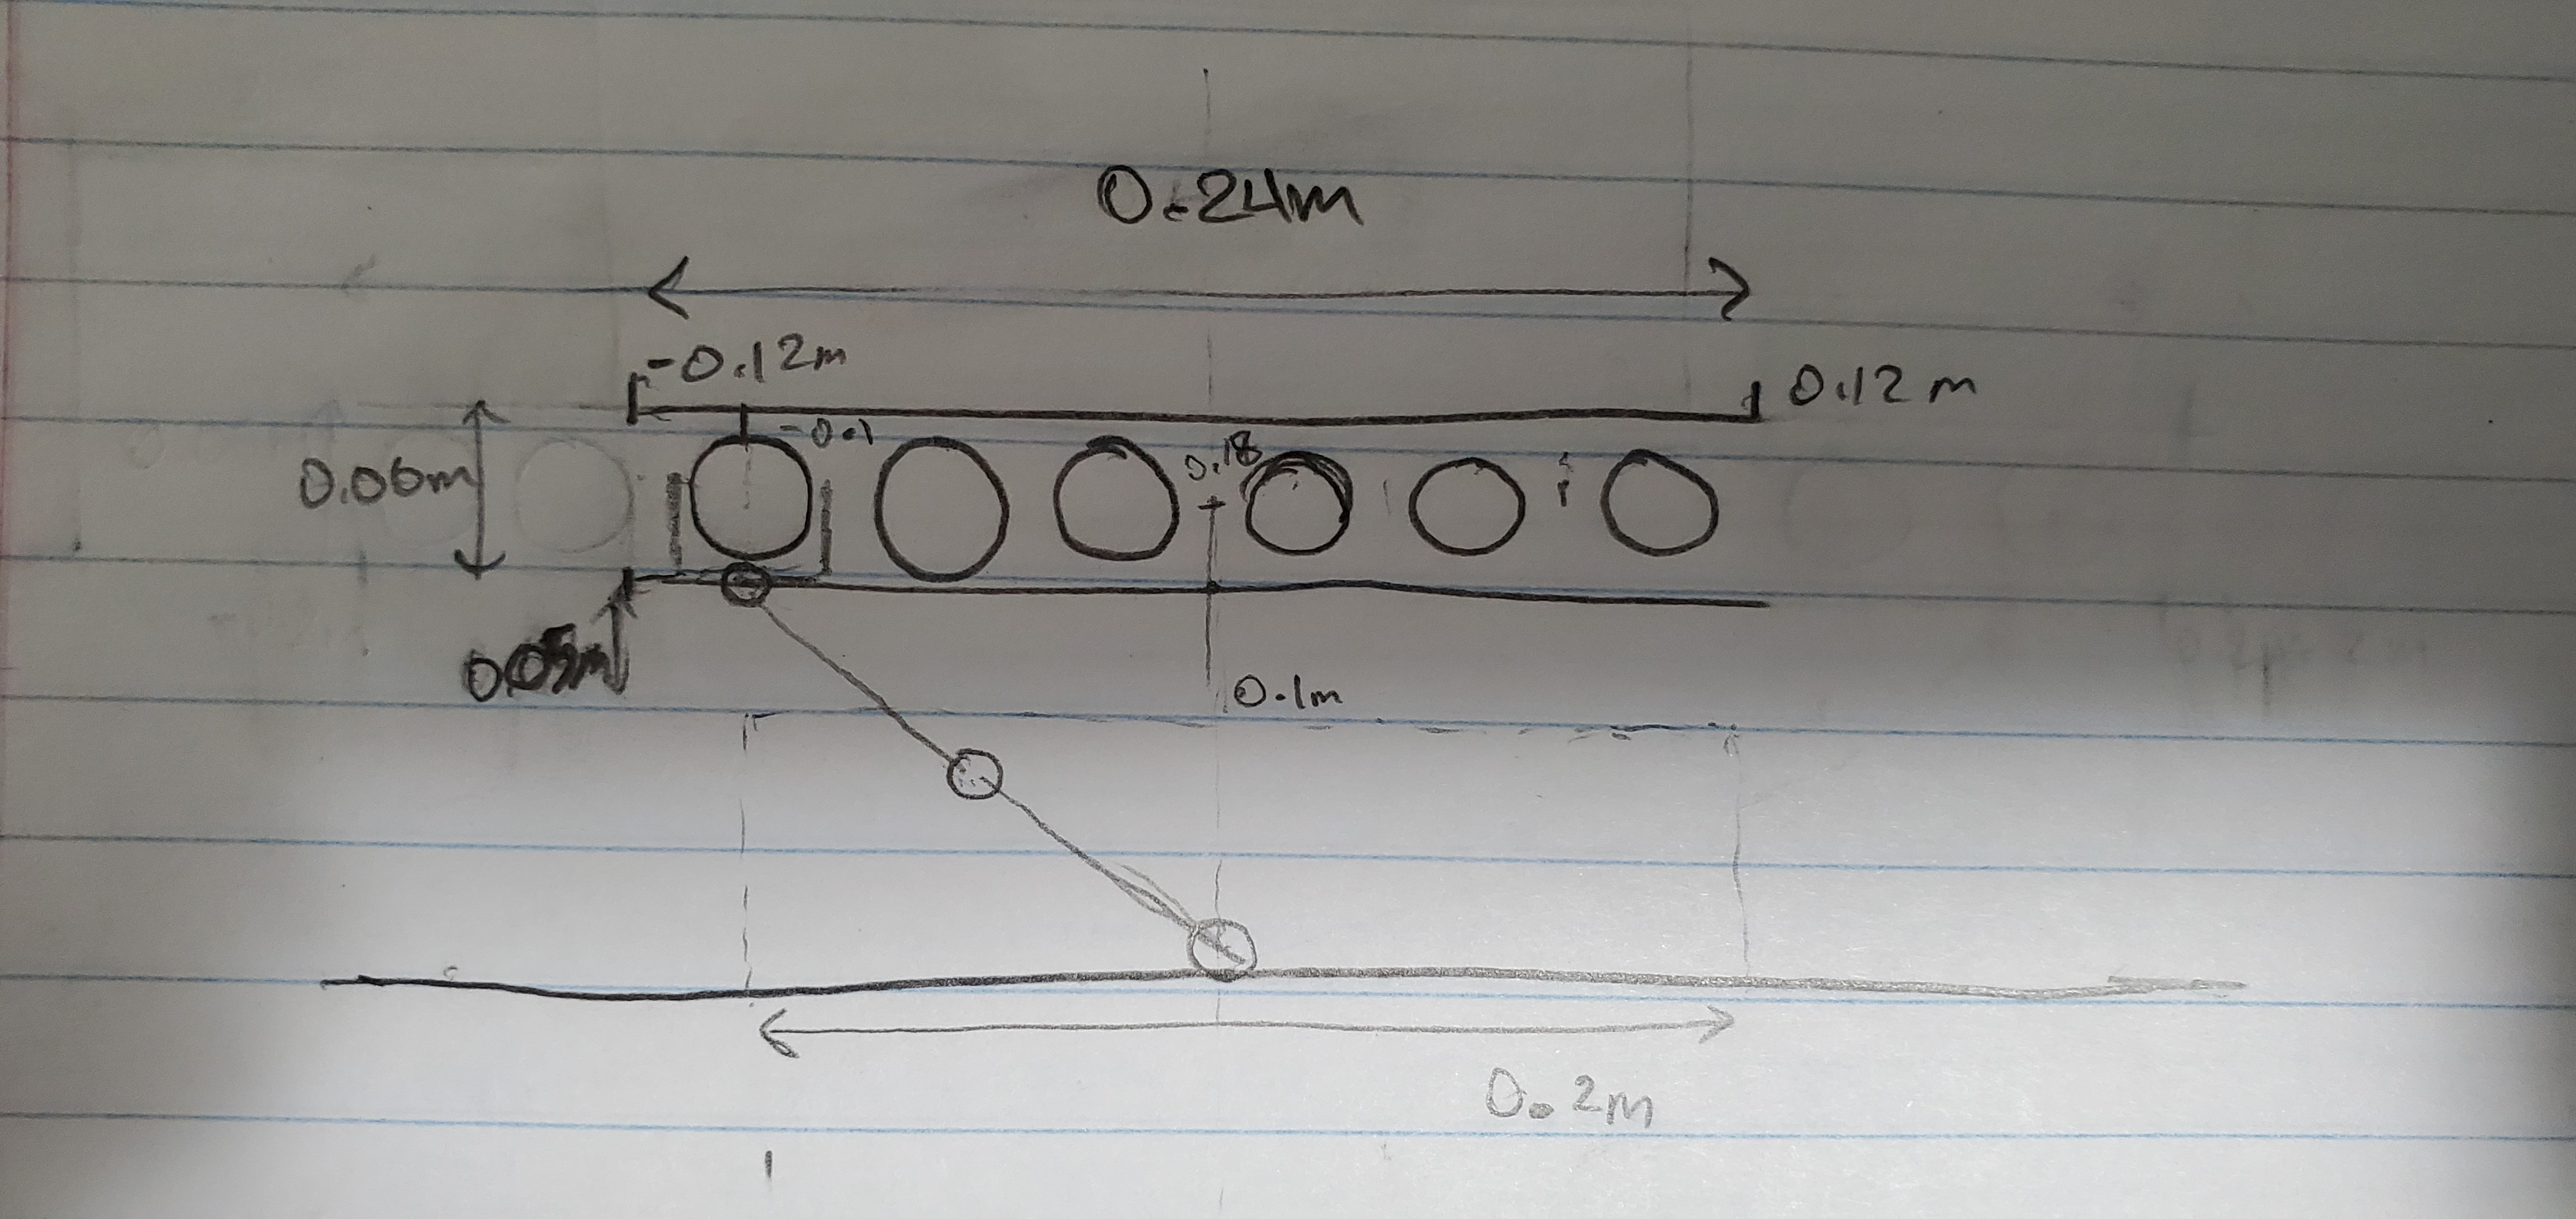 0.24m
-0.12m
0.12m
-0.1
0.18
0.06m
0.05m
0.1m
0.2m